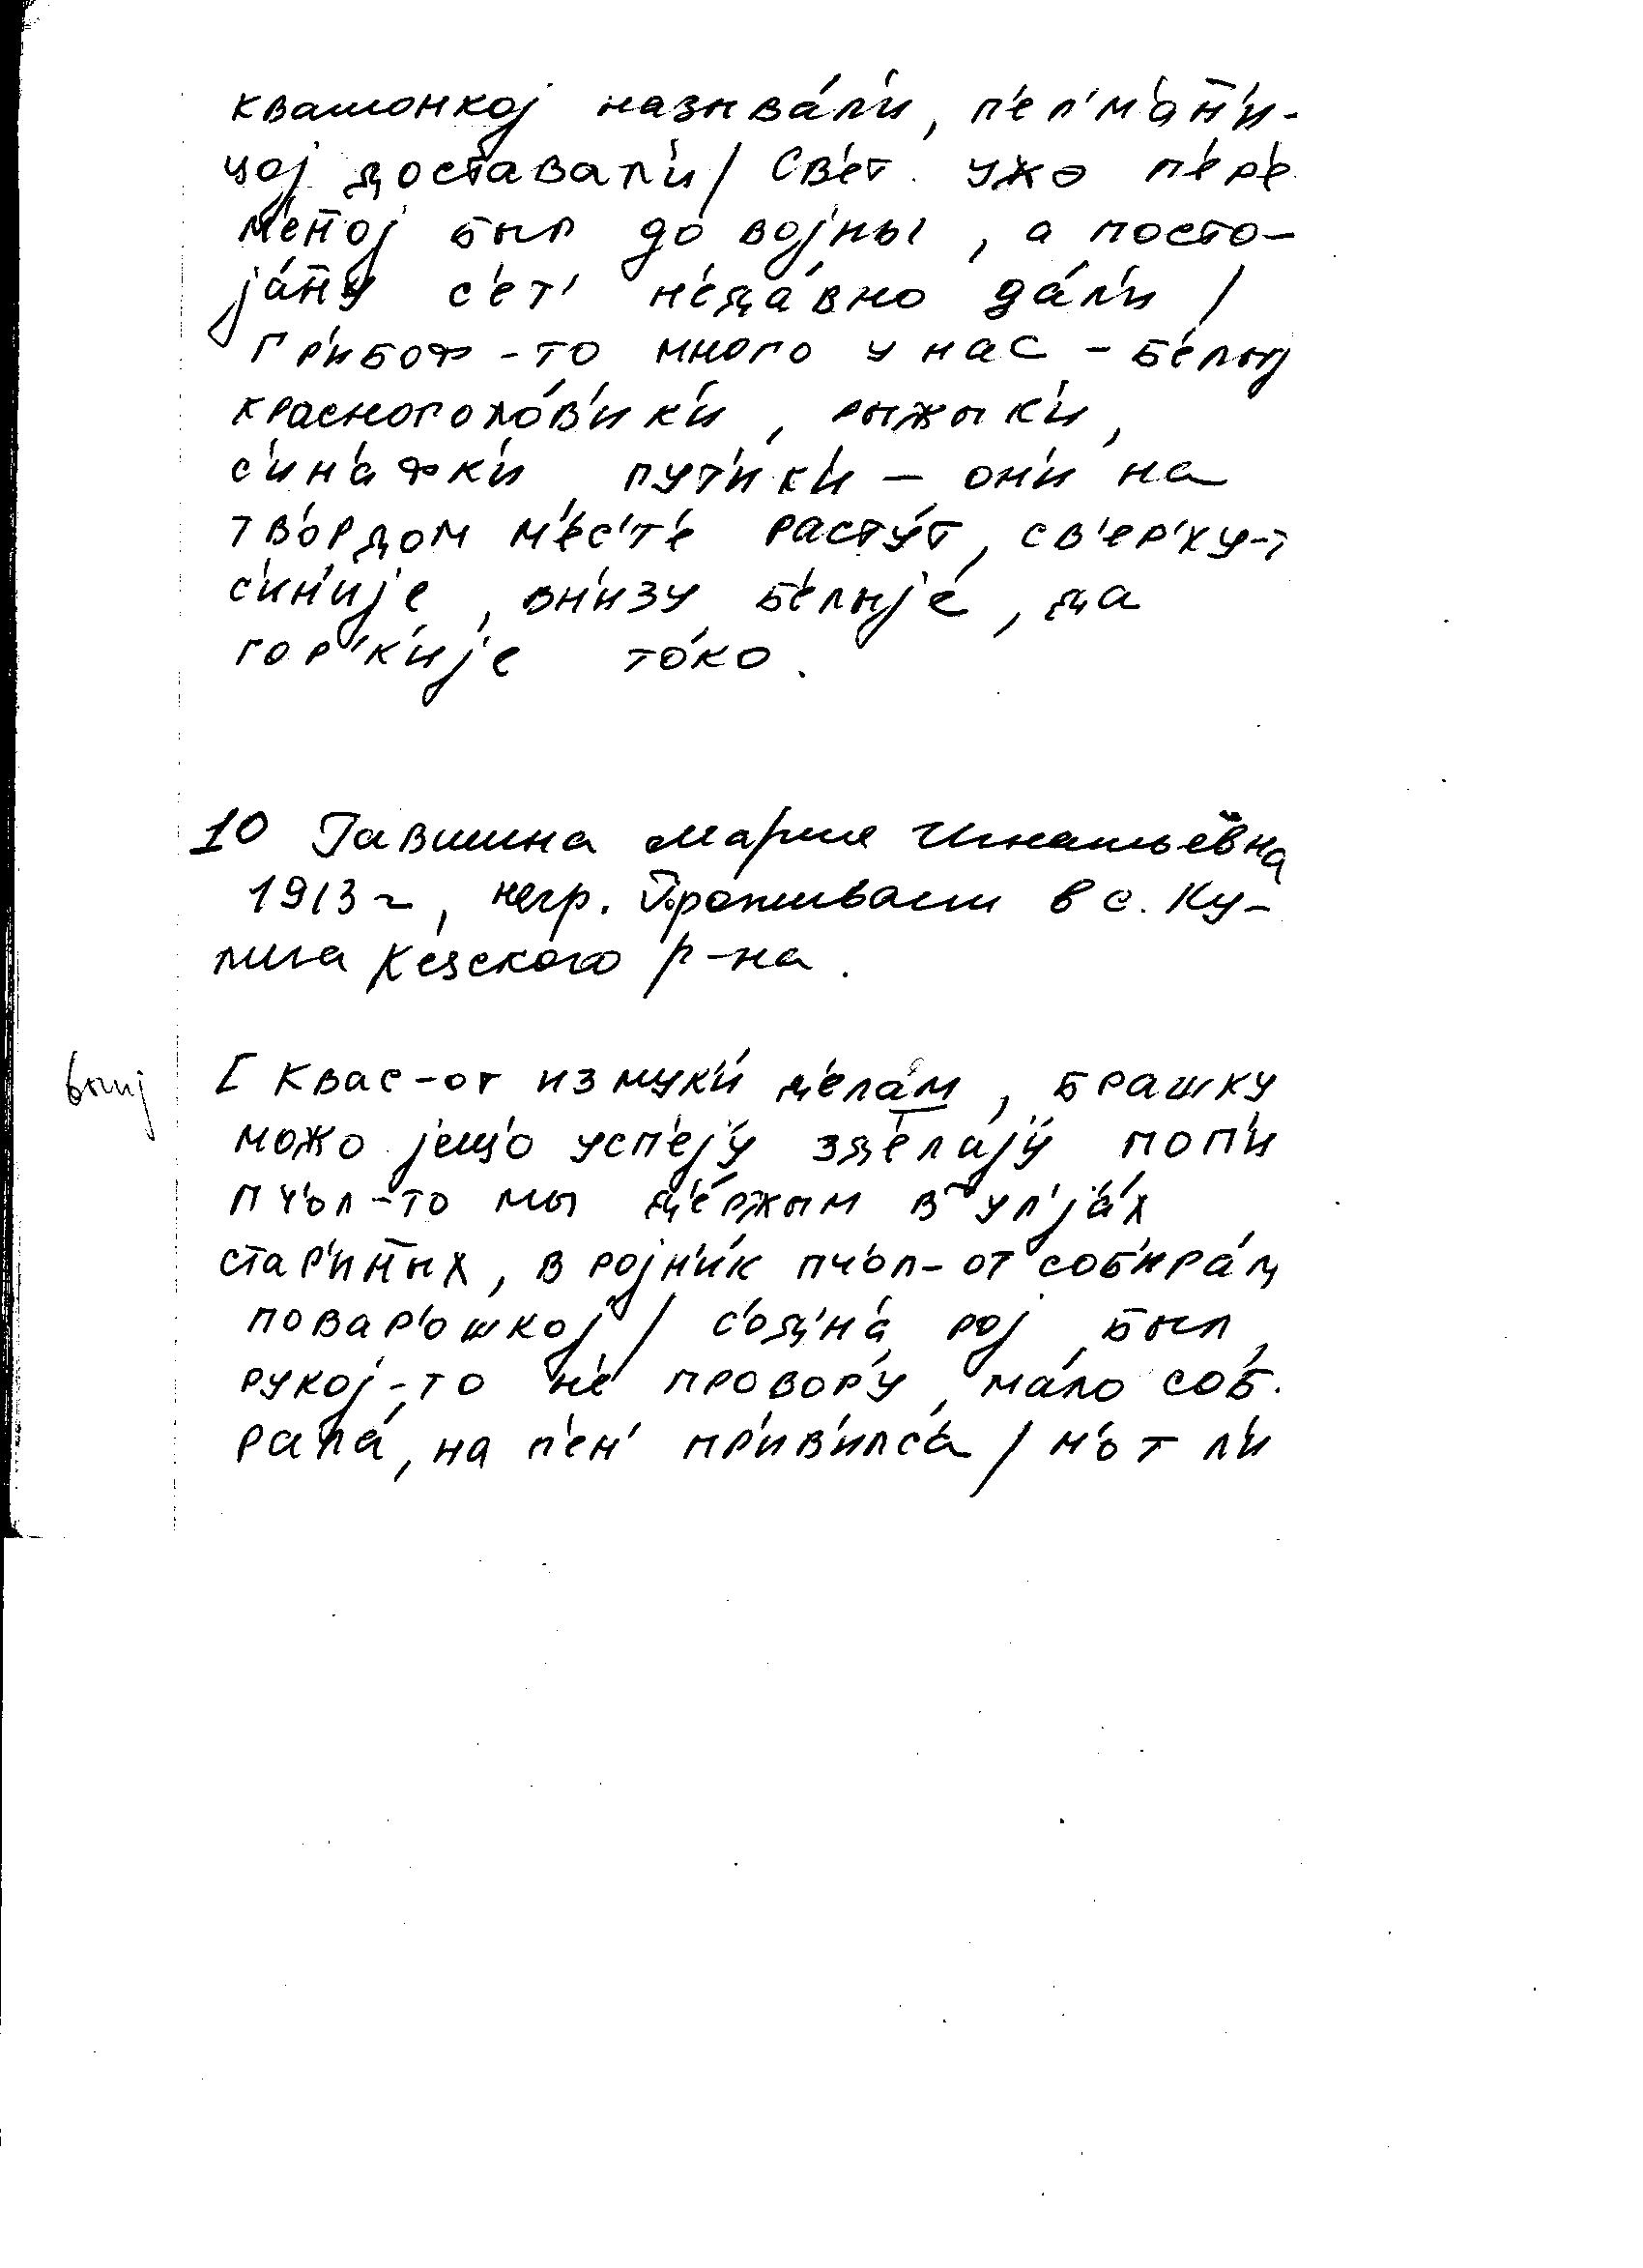 квашонкој называ́л'и, п'ел'м'ан̄'и-
цој доставал'и / Св'ет ужэ п'ер'е
м'ен̄ој был до војны, а посто-
ја́н̄у с'ет' н'еда́вно да́л'и /
Гр'ибоф-то много у нас – б'елыј
красноголо́в'ик'и, рыжык'и,
с'ин'афк'и, пут'ик'и – он'и на
тв'о́рдом м'е́с'т'е расту́т, св'ер'ху-т
с'ин'ије, вн'изу б'елыје, да
гор'к'ије то́ко.
10 Гавшина Мария Игнатьевна
1913 г, негр. Проживает в с. Ку-
лига Кезского р-на.
[ Квас-от из мук'и́ д'ела́м, брашку
можо јещ'о усп'еју зд'елају поп'и
пч'ол-то мы д'е́ржым в ул'ја́х
стар'ин̄ых, вројн'ик пч'ол-от соб'ира́м
повар'ошкој / с'од'н'а рој был,
рукој-то н'е провор'у, ма́ло соб-
рала́, на п'ен' пр'ив'илс'а / м'о́т л'и